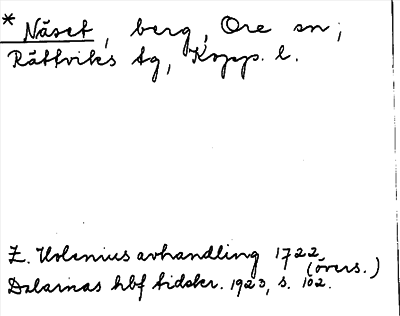 * Näset, berg, Ore sn;
Rättviks tg, Kopp. l.
Z. Holenius avhandling 1722
(övers.)
Dalarnas hbf tidskr. 1923, s. 102.